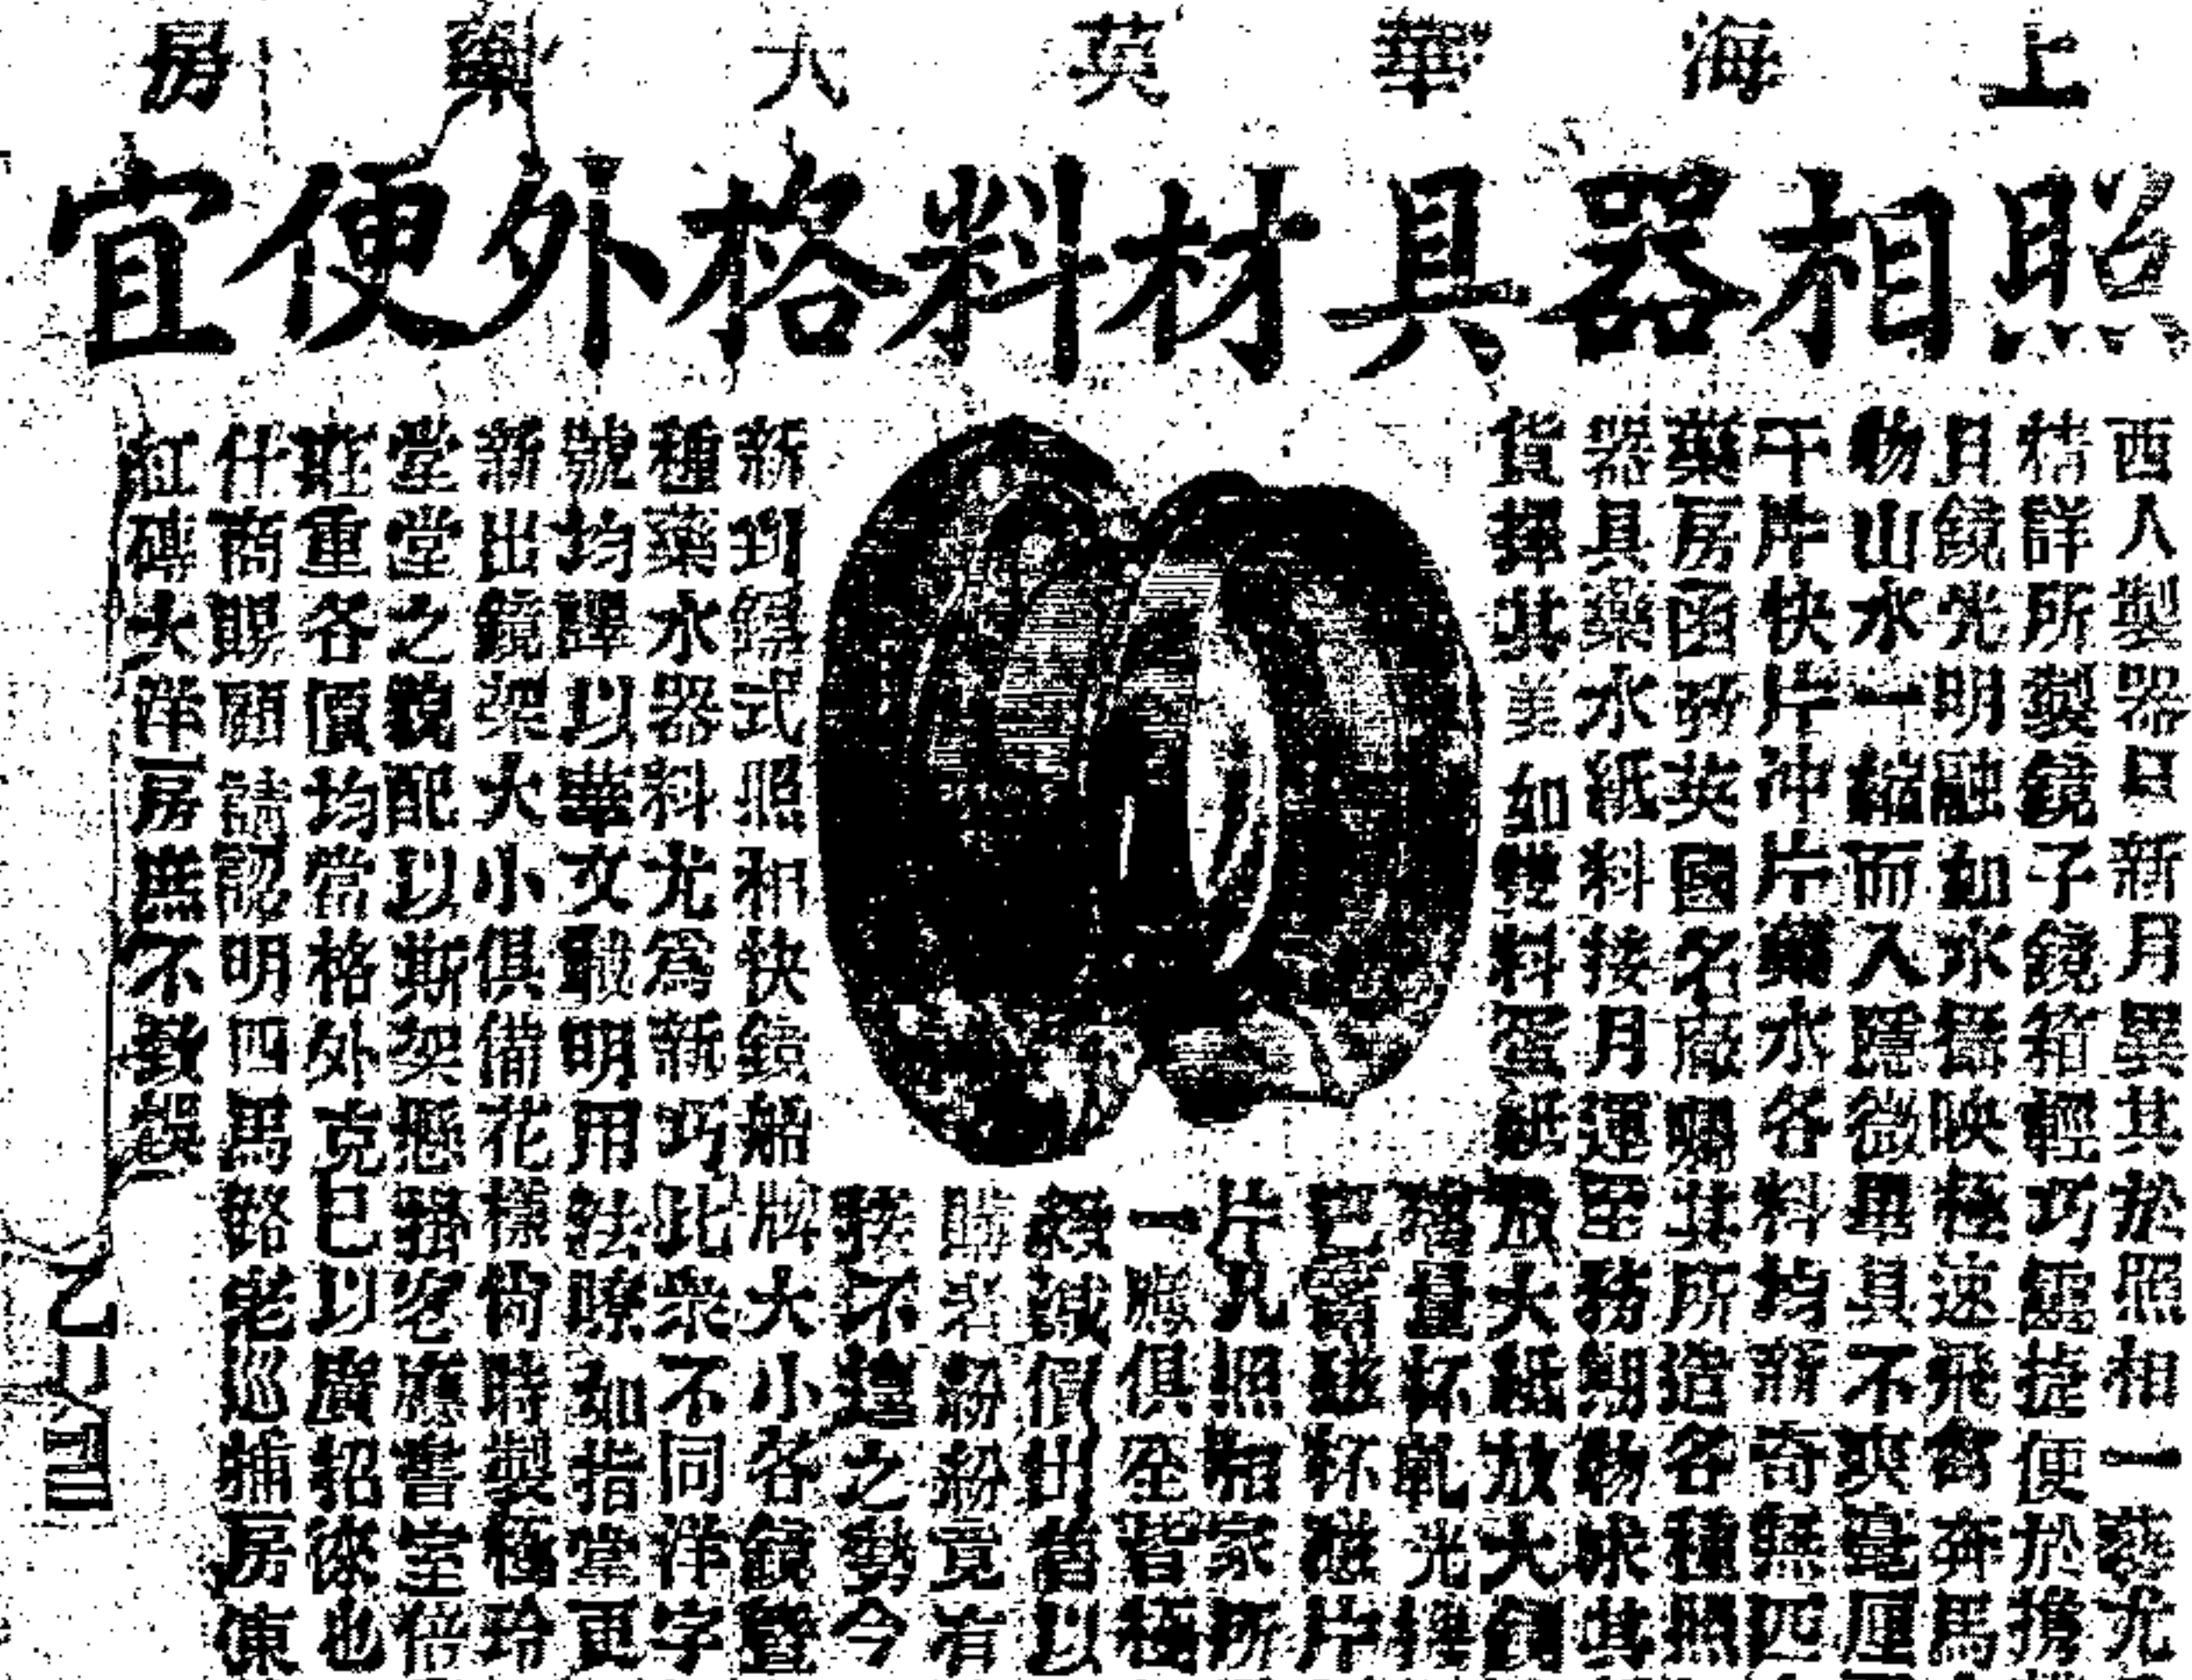 上海華英大藥房
照相器具材料格外便宜
西人製器日新月異其於照相一藝尤
精詳所製鏡子鏡箱輕巧靈捷便於攜
月鏡光明融如水攝映極速飛禽奔馬
物山水一縮而入隱微畢具不爽毫厘
干片快片沖片藥水各料均新奇無匹
藥房函致英國名廠購其所造各種照
器具藥水紙料按月運至務期物求其
貨擇其美如雙料蛋紙放大紙放大鏡
量杯乾光
杯磁片
片凡照相家所
一應俱全皆極
誠價廿以
購者紛紛竟有
接不遑之勢今
新到 式照相快鏡船牌大小各鏡暨
種藥水器料尤為新巧此衆不同洋字
號均譯以華文職明用法瞭如指掌更
新出鏡架大小俱備花樣時製極玲
堂堂之貌配以斯架懸 客應書室倍
莊重各價均當格外克已以廣招徠也
仕商賜顧請認明四馬路老巡捕房東
紅磚大洋房庶不致誤